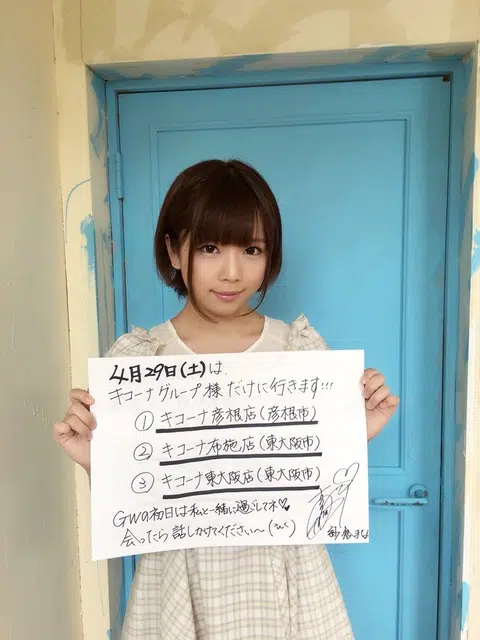 4月29日(土)は、
キコーナグループ様だけに行きます!!!
① キコーナ彦根店(彦根市)
② キコーナ布施店(東大阪市)
③ キコーナ東大阪店(東大阪市)
GWの初日は私と一緒に過ごしてネ♡
会ったら話しかけてください〜